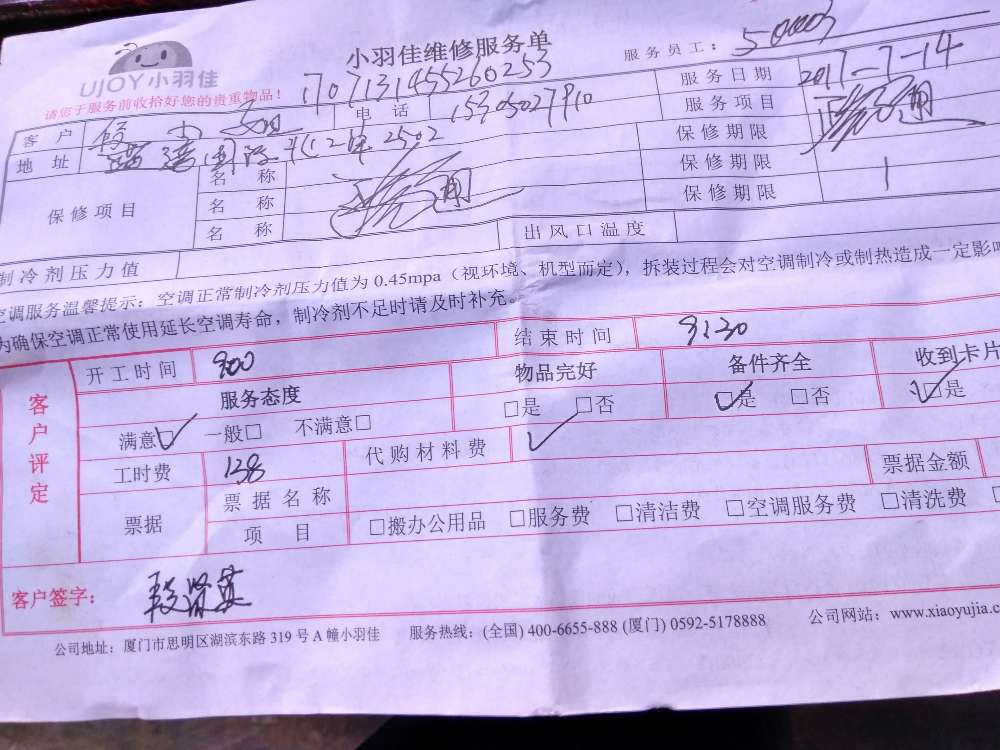 UJOY小羽佳
小羽佳维修服务单
服务员工：
请您于服务前收拾好您的贵重物品！
1707131455260253
服务日期 2017-7-14
客户 段小姐 电话 15305027910 服务项目
地址 2502 保修期限
保修项目 名称 保修期限
名称 保修期限 1
名称
制冷剂压力值 出风口温度
空调服务温馨提示：空调正常制冷剂压力值为 0.45mpa（视环境、机型而定），拆装过程会对空调制冷或制热造成一定影
为确保空调正常使用延长空调寿命，制冷剂不足时请及时补充。
客户评定 开工时间 900 结束时间 9:30
服务态度 物品完好 备件齐全 收到卡片
满意☑ 一般□ 不满意□ □是 □否 ☑是 □否 ☑是
工时费 138 代购材料费
票据 票据名称 票据金额
项目 □搬办公用品 □服务费 □清洁费 □空调服务费 □清洗费
客户签字：
公司地址：厦门市思明区湖滨东路 319 号 A 幢小羽佳 服务热线：(全国) 400-6655-888 (厦门) 0592-5178888 公司网站：www.xiaoyujia.c